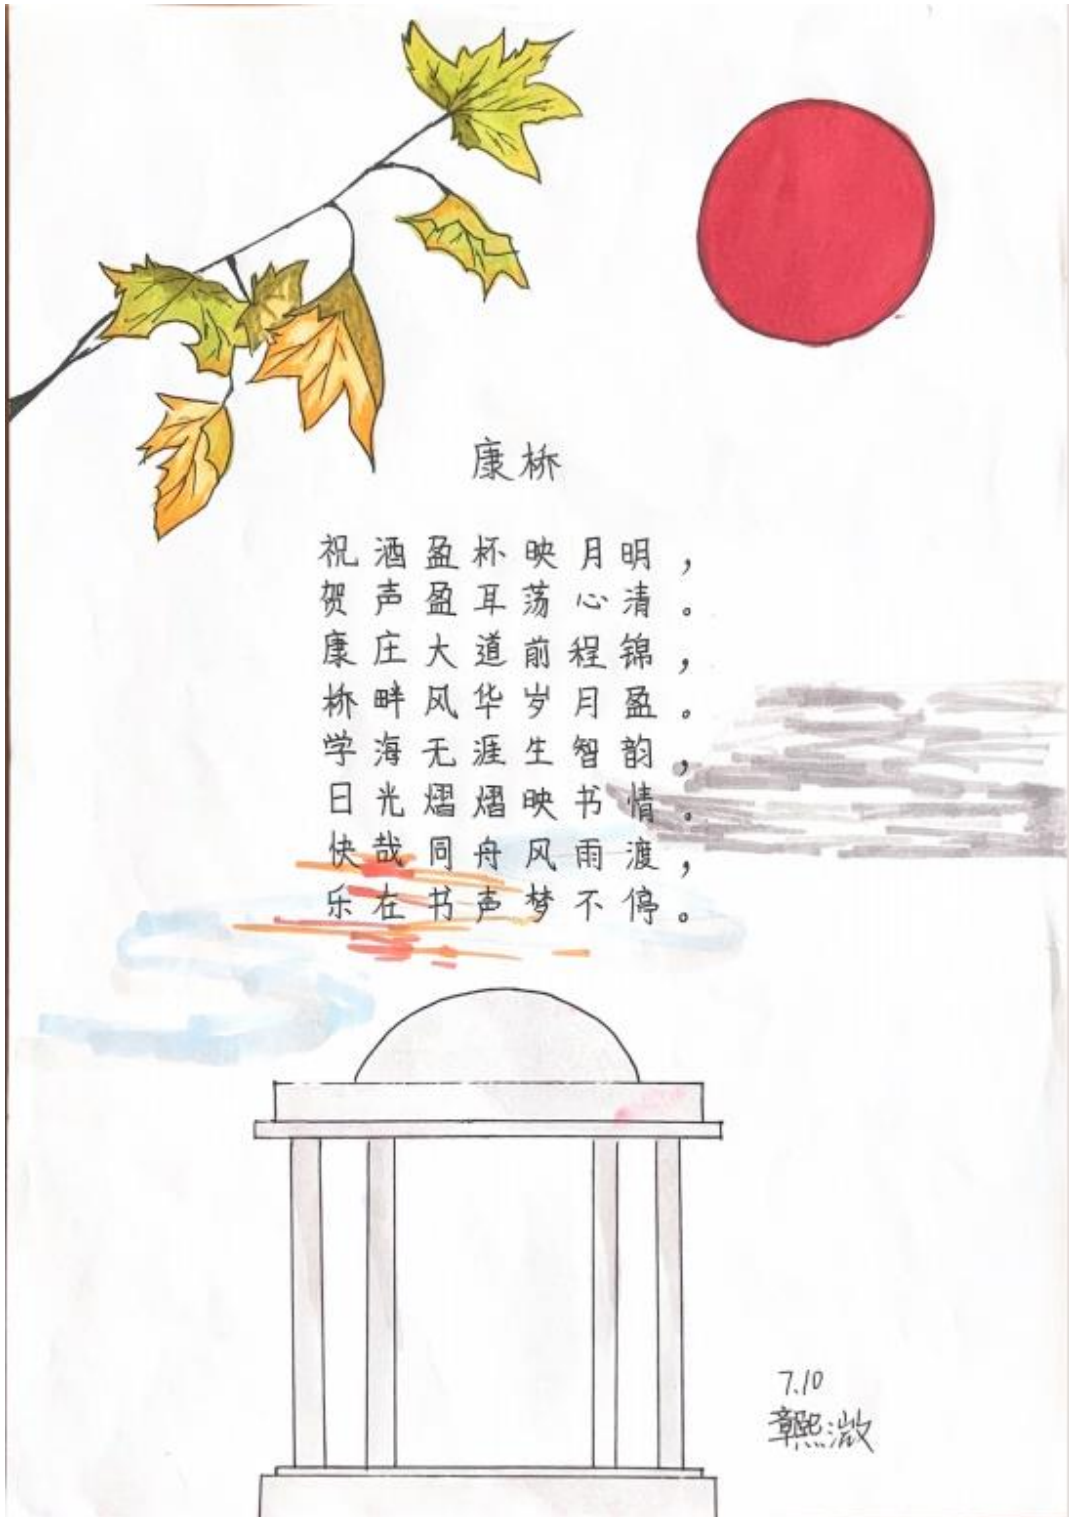 康桥
祝酒盈杯映月明，
贺声盈耳荡心清。
康庄大道前程锦，
桥畔风华岁月盈。
学海无涯生智韵，
日光熠熠映书情。
快哉同舟风雨渡，
乐在书声梦不停。
7.10
章熙溦